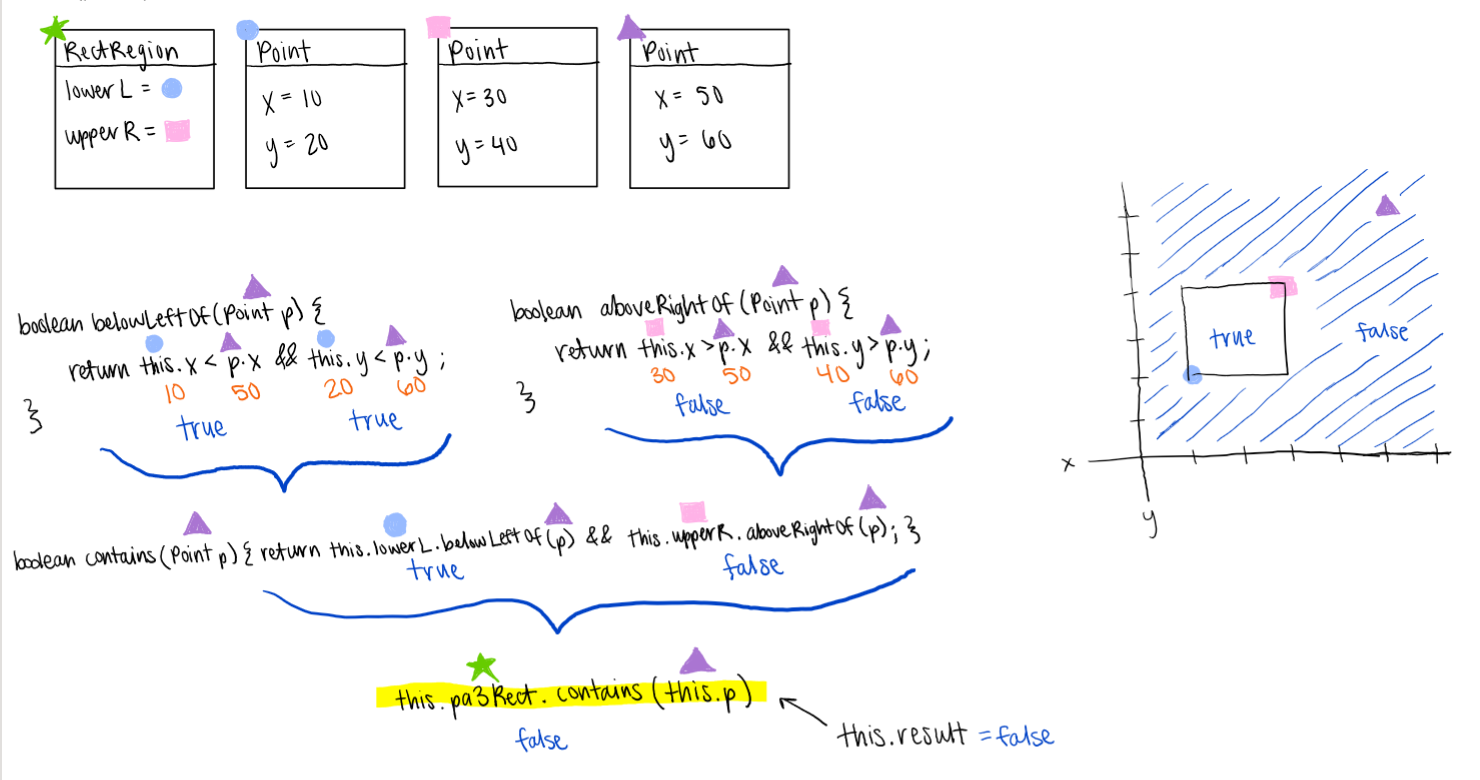 RectRegion
lowerL =
upperR =
Point
x = 10
y = 20
Point
x = 30
y = 40
Point
x = 50
y = 60
boolean belowLeftOf(Point p) {
return this.x < p.x && this.y < p.y ;
10 50 20 60
}
true true
boolean aboveRightOf (Point p) {
return this.x > p.x && this.y > p.y ;
30 50 40 60
}
false false
true
false
x
y
boolean contains (Point p) { return this.lowerL.belowLeftOf (p) && this.upperR.aboveRightOf (p); }
true false
this.pa3Rect.contains (this.p)
false
this.result = false